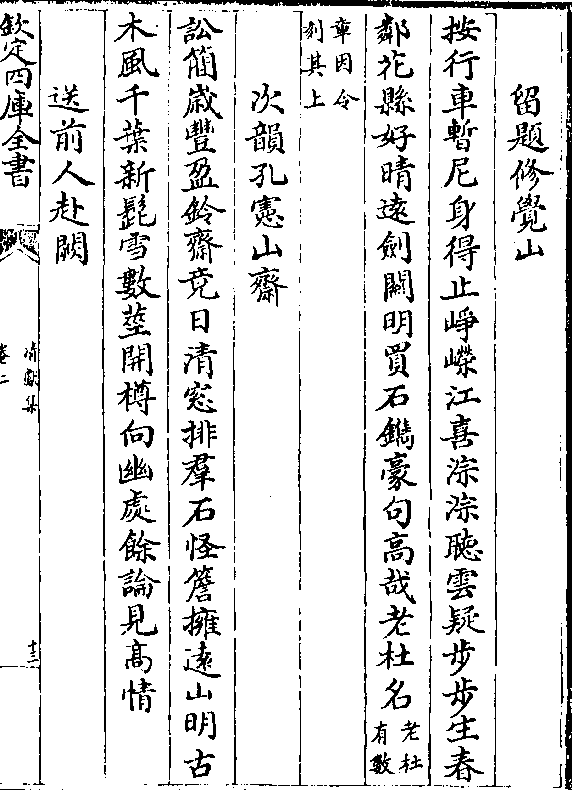 留題修覺山
按行車暫尼身得止崢嶸江喜淙淙聽雲疑步步生春
鄰花縣好晴遠劍闗明買石鐫豪句高哉老杜名老杜有數
章因令刻其上
次韻孔憲山齋
訟簡歲豐盈鈴齋竟日清窓排羣石怪簷擁逺山明古
木風千葉新髭雪數莖開樽向幽處餘論見髙情
送前人赴闕
欽定四庫全書
清獻集
卷二
十二